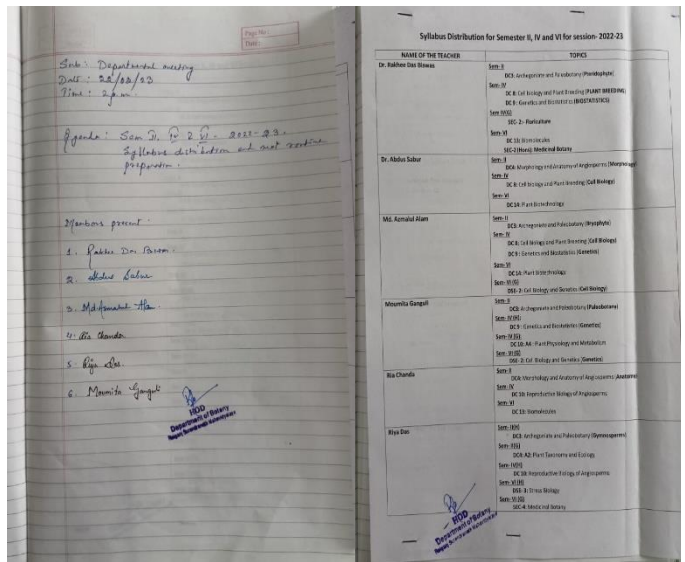 Page No:
Date:
Sub: Departmental meeting
Date: 22/02/23
Time: 2 p.m.
Agenda: Sem II, IV & VI. 2022-23.
Syllabus distribution and routine
preparation.
Members present:
1. Rakhee Das Biswas
2. Abdus Sabur
3. Md. Azmalul
4. Ria Chanda
5. Riya Das.
6. Moumita Ganguli
HOD
Department of Botany
Syllabus Distribution for Semester II, IV and VI for session- 2022-23
NAME OF THE TEACHER TOPICS
Dr. Rakhee Das Biswas Sem- II
DC3: Archegoniate and Paleobotany (Pteridophyte)
Sem- IV
DC 8: Cell biology and Plant Breeding (PLANT BREEDING)
DC 9: Genetics and Biostatistics (BIOSTATISTICS)
Sem IV(G)
SEC- 2- Floriculture
Sem- VI
DC 13: Biomolecules
SEC-2(Hons): Medicinal Botany
Dr. Abdus Sabur Sem- II
DC4: Morphology and Anatomy of Angiosperms (Morphology)
Sem- IV
DC 8: Cell biology and Plant Breeding (Cell Biology)
Sem- VI
DC 14: Plant Biotechnology
Md. Azmalul Alam Sem- II
DC3: Archegoniate and Paleobotany (Bryophyte)
Sem- IV
DC 8: Cell biology and Plant Breeding (Cell Biology)
DC 9: Genetics and Biostatistics (Genetics)
Sem- VI
DC 14: Plant Biotechnology
Sem- VI (G)
DSE- 2: Cell Biology and Genetics (Cell Biology)
Moumita Ganguli Sem- II
DC3: Archegoniate and Paleobotany (Paleobotany)
Sem- IV (H):
DC 9: Genetics and Biostatistics (Genetics)
Sem- IV (G):
DC 10: A4: Plant Physiology and Metabolism
Sem- VI (G)
DSE- 2: Cell Biology and Genetics (Genetics)
Ria Chanda Sem- II
DC4: Morphology and Anatomy of Angiosperms (Anatomy)
Sem- IV
DC 10: Reproductive Biology of Angiosperms
Sem- VI
DC 13: Biomolecules
Riya Das Sem- II(H)
DC3: Archegoniate and Paleobotany (Gymnosperms)
Sem- II(G)
DC4: A2: Plant Taxonomy and Ecology
Sem- IV(H)
DC 10: Reproductive Biology of Angiosperms
Sem- VI (H)
DSE- 3: Stress Biology
Sem- VI (G)
SEC-4: Medicinal Botany
HOD
Department of Botany